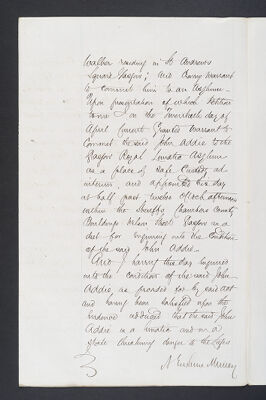 Walker residing in St Andrews
Square Glasgow; and Craving Warrant
to Commit him to an Asylum.
Upon presentation of which Petition
to me I on the Twentieth day of
April Current Granted Warrant to
Commit the said John Addie to the
Glasgow Royal Lunatic Asylum
as a place of safe Custody ad
interim, and appointed this day
at half past twelve oClock afternoon
within the Sheriffs Chambers County
Buildings Wilson Street Glasgow as a
diet for enquiring into the condition
of the said John Addie.
And I having this day enquired
into the condition of the said John
Addie, as provided for by said act
and having been satisfied upon the
Evidence adduced that the said John
Addie is a lunatic and in a
state threatening danger to the lieges